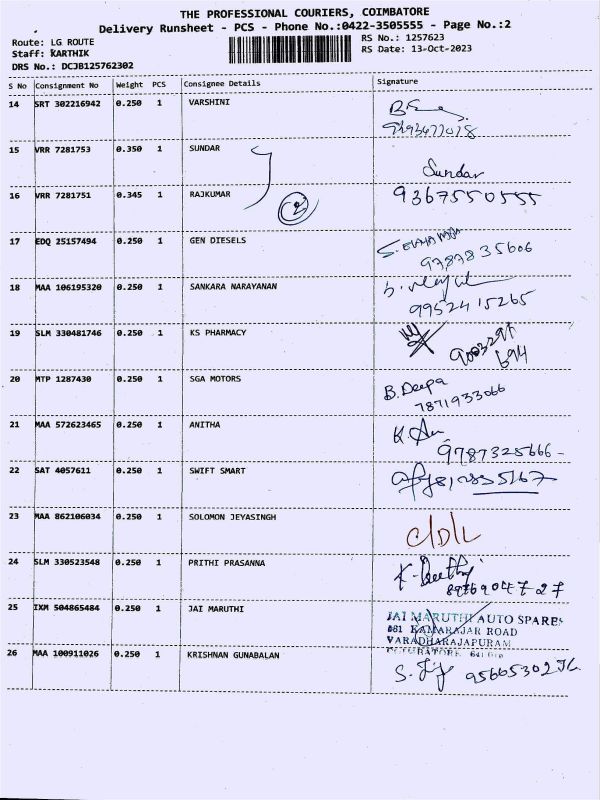 THE PROFESSIONAL COURIERS, COIMBATORE
Delivery Runsheet - PCS - Phone No.:0422-3505555 - Page No.:2
Route: LG ROUTE
Staff: KARTHIK
DRS No.: DCJB125762302
RS No.: 1257623
RS Date: 13-Oct-2023
S No Consignment No Weight PCS Consignee Details Signature
14 SRT 302216942 0.250 1 VARSHINI
15 VRR 7281753 0.350 1 SUNDAR
Sundar
16 VRR 7281751 0.345 1 RAJKUMAR 2 9367550555
17 EDQ 25157494 0.250 1 GEN DIESELS
9787835606
18 MAA 106195320 0.250 1 SANKARA NARAYANAN
9952415265
19 SLM 330481746 0.250 1 KS PHARMACY
20 MTP 1287430 0.250 1 SGA MOTORS B. Deepa
7871933066
21 MAA 572623465 0.250 1 ANITHA
9787325666-
22 SAT 4057611 0.250 1 SWIFT SMART
23 MAA 862106034 0.250 1 SOLOMON JEYASINGH C/D/L
24 SLM 330523548 0.250 1 PRITHI PRASANNA
8976904727
25 IXM 504865484 0.250 1 JAI MARUTHI JAI MARUTHI AUTO SPARES
681 KAMARAJAR ROAD
VARADHARAJAPURAM
26 MAA 100911026 0.250 1 KRISHNAN GUNABALAN